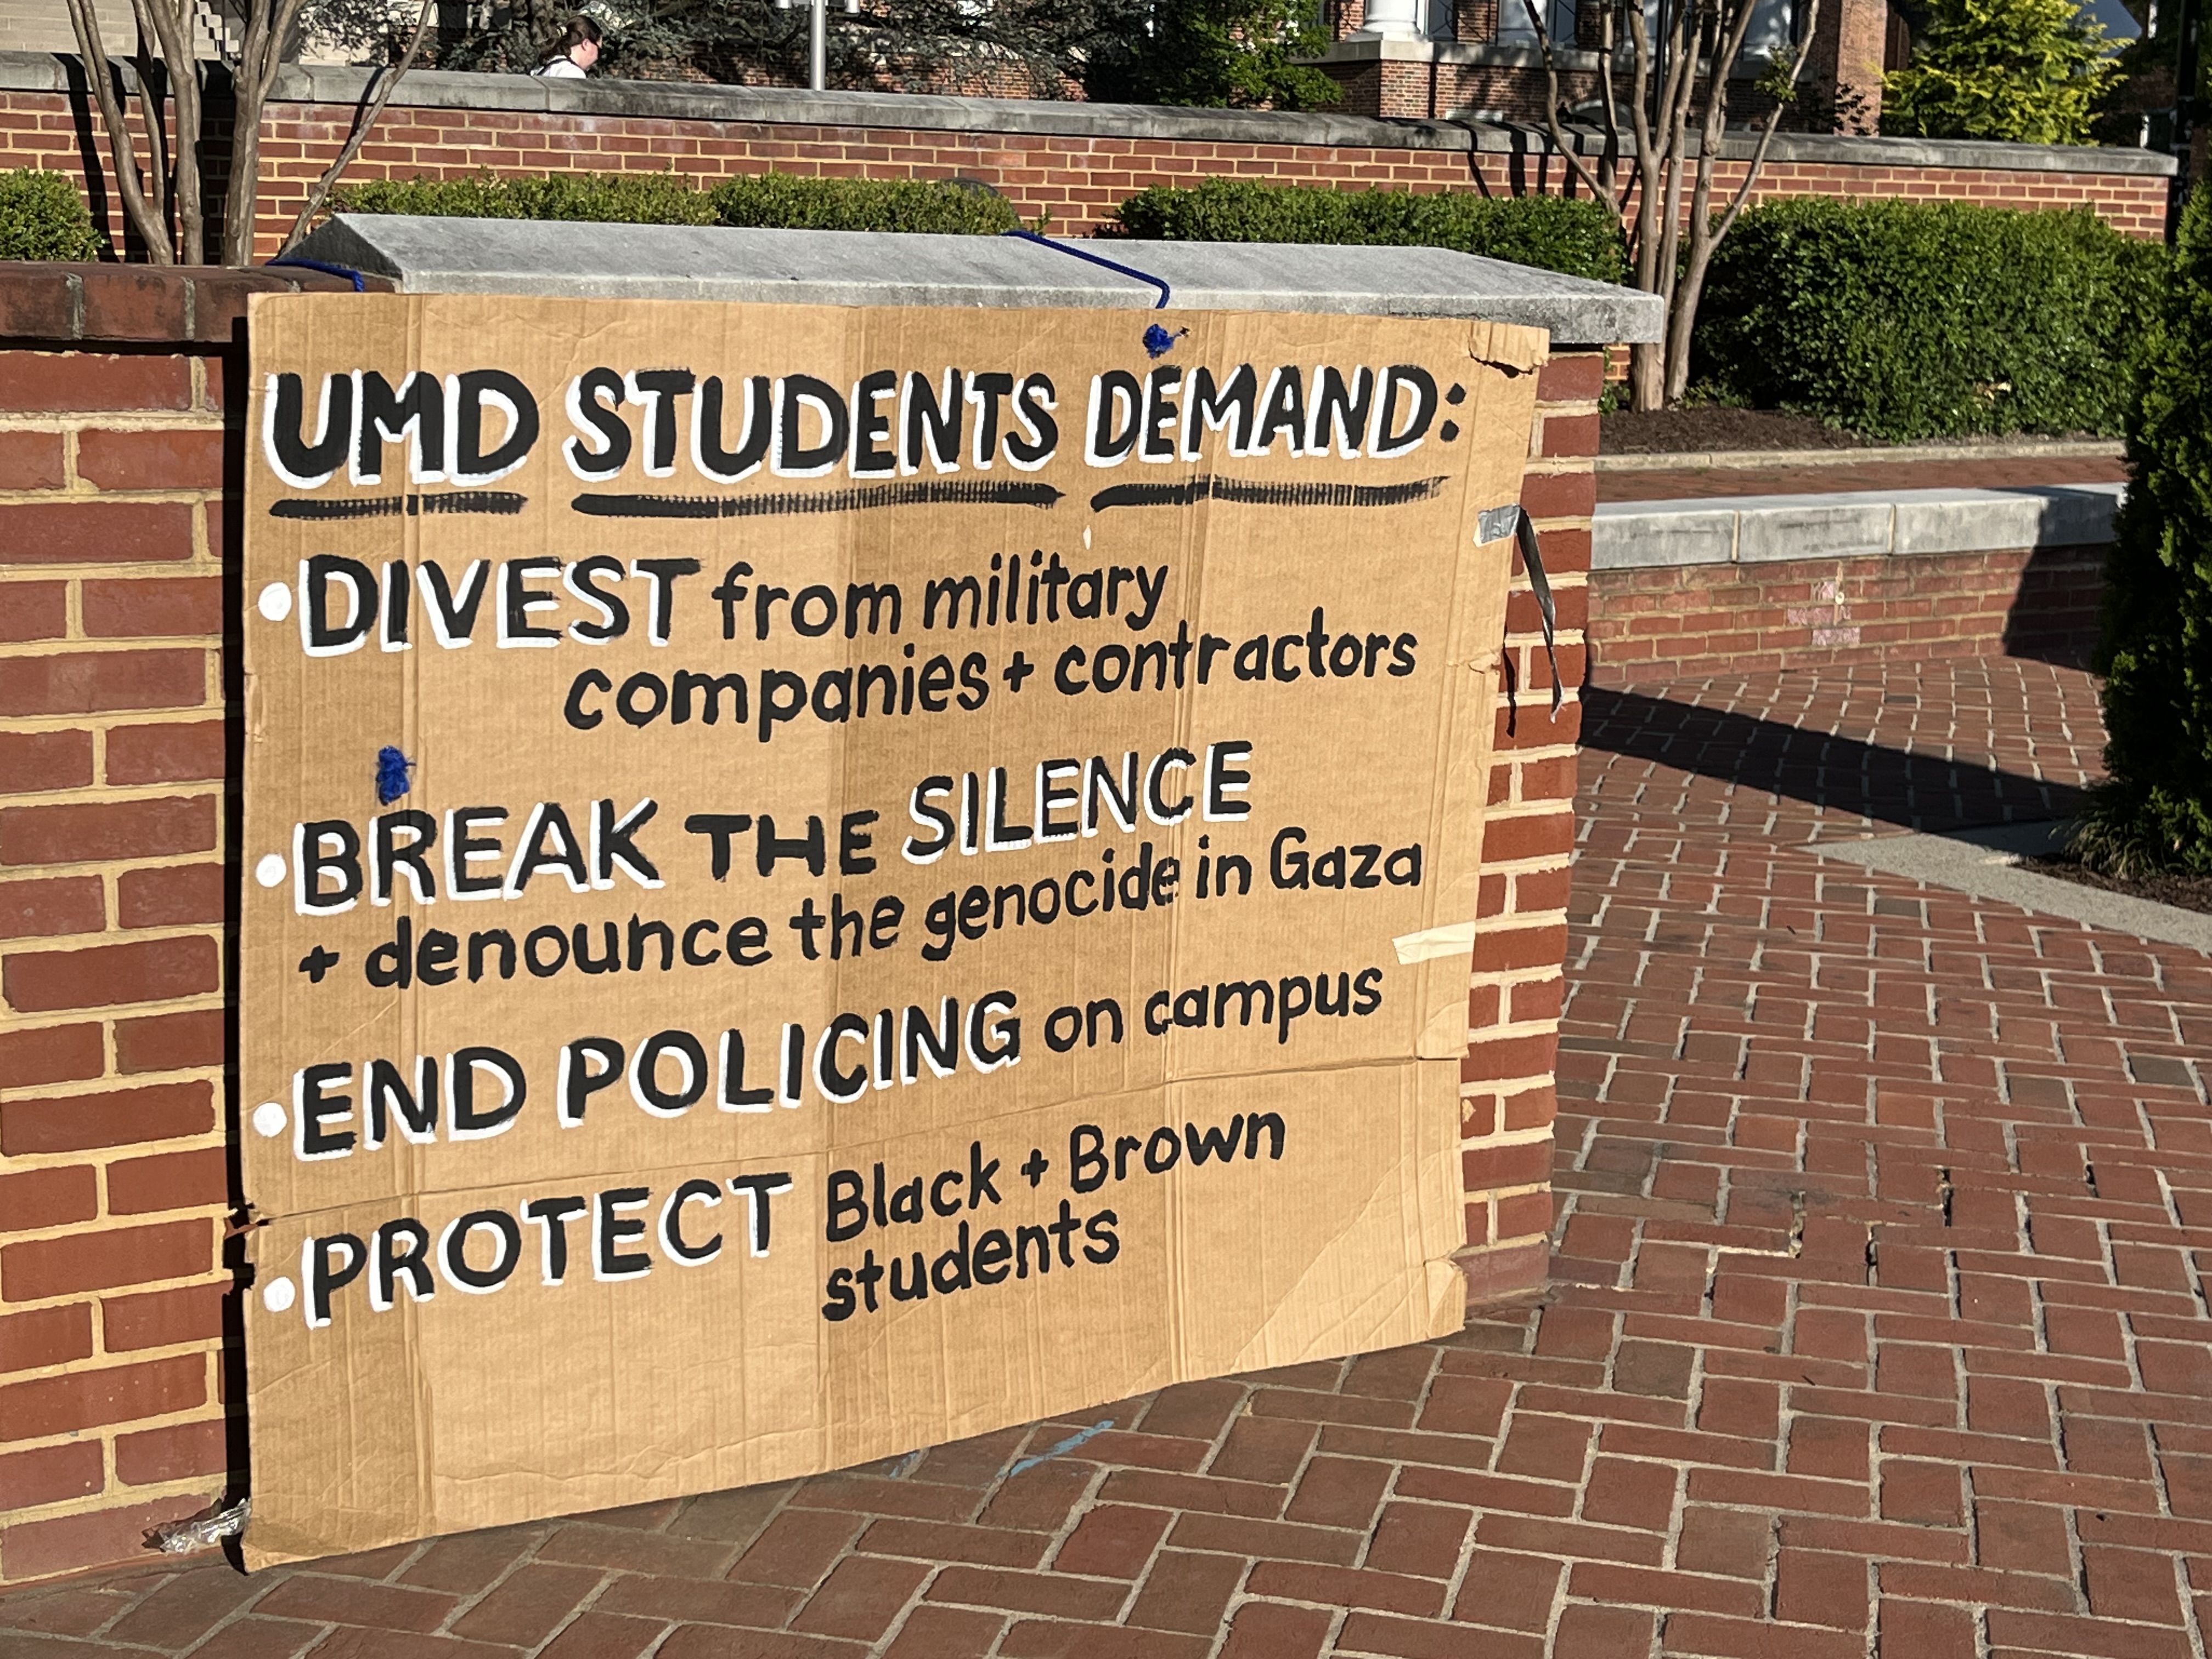 UMD STUDENTS DEMAND:
•DIVEST from military
companies + contractors
•BREAK THE SILENCE
+ denounce the genocide in Gaza
•END POLICING on campus
•PROTECT Black + Brown
students